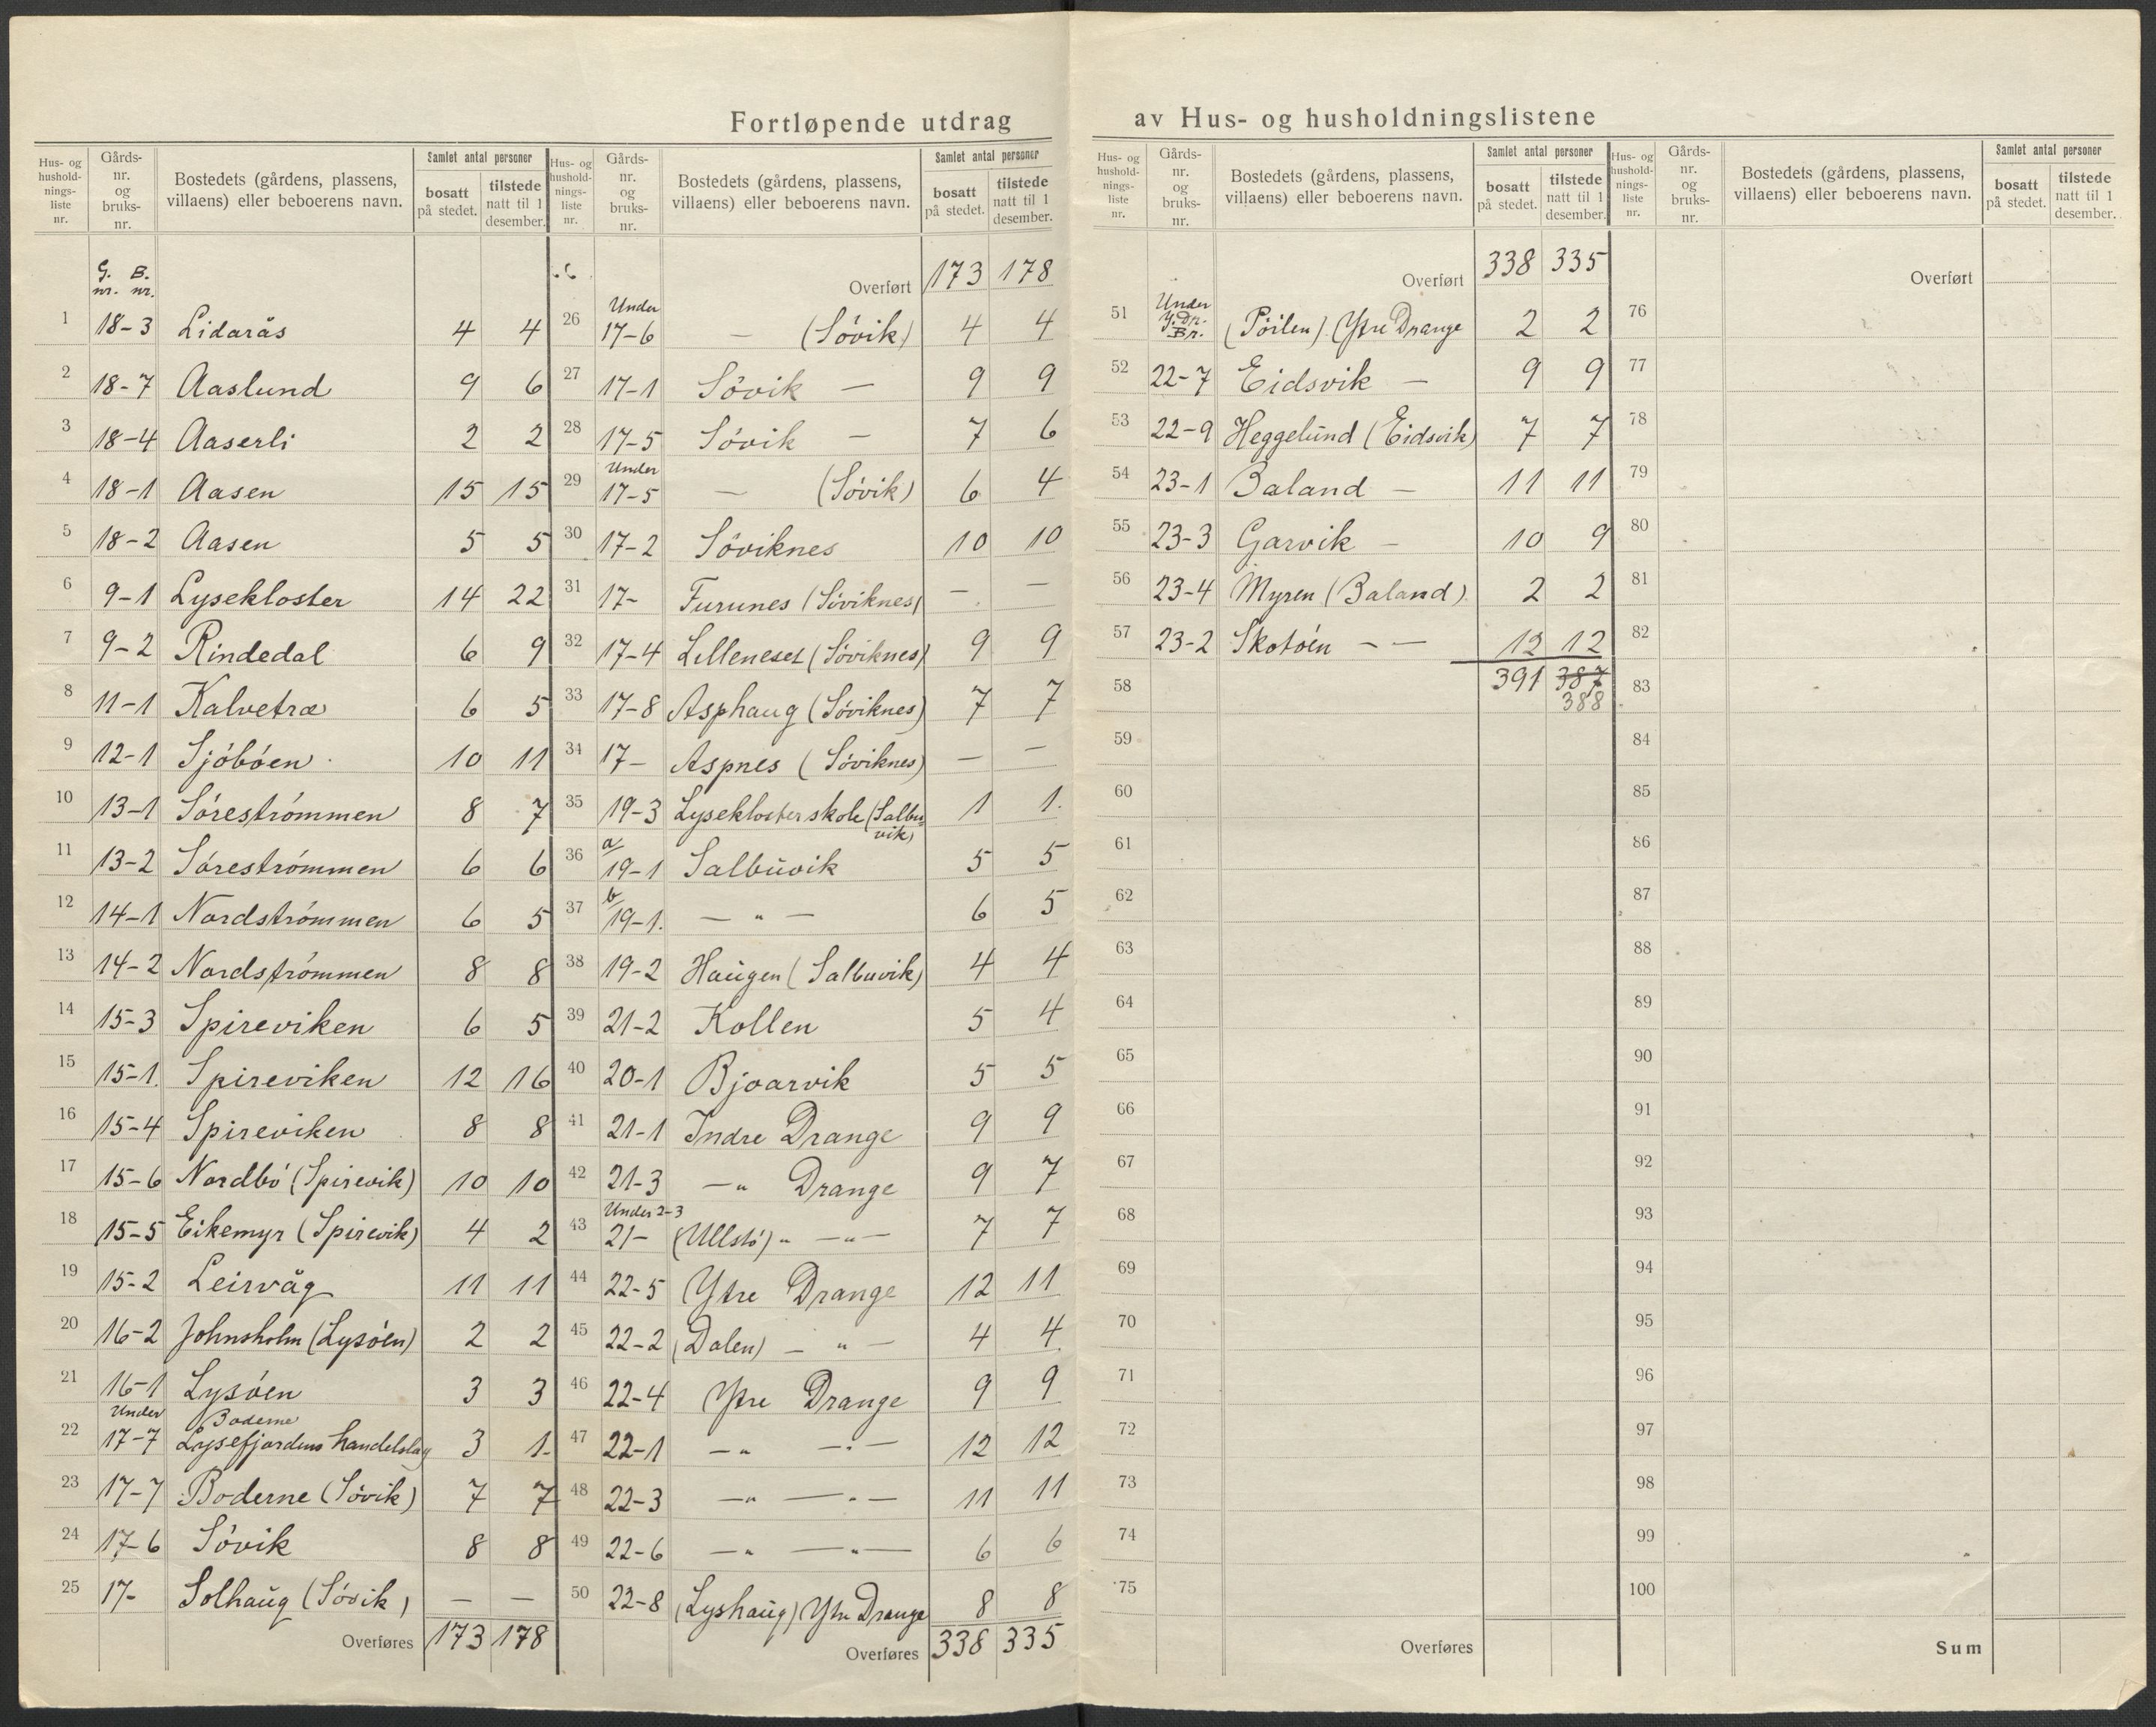 Fortløpende utdrag av Hus- og husholdningslistene
Hus- og husholdnings-liste nr. | Gårds-nr. og bruks-nr. | Bostedets (gårdens, plassens, villaens) eller beboerens navn. | Samlet antal personer | bosatt på stedet. | tilstede natt til 1 desember.
G. nr. B. nr.
1 18-3 Lidarås 4 4
2 18-7 Aaslund 9 6
3 18-4 Aaserli 2 2
4 18-1 Aasen 15 15
5 18-2 Aasen 5 5
6 9-1 Lysekloster 14 22
7 9-2 Rindedal 6 9
8 11-1 Kalvetræ 6 5
9 12-1 Sjöböen 10 11
10 13-1 Söreströmmen 8 7
11 13-2 Söreströmmen 6 6
12 14-1 Nordströmmen 6 5
13 14-2 Nordströmmen 8 8
14 15-3 Spireviken 6 5
15 15-1. Spireviken 12 16
16 15-4 Spireviken 8 8
17 15-6 Nordbö (Spirevik) 10 10
18 15-5 Eikemyr (Spirevik) 4 2
19 15-2 Leirvåg 11 11
20 16-2 Johnsholm (Lysöen) 2 2
21 16-1 Lysöen 3 3
22 Under 17-7 Boderne Lysefjordens handelslag 3 1.
23 17-7 Boderne (Sövik) 7 7
24 17-6 Sövik 8 8
25 17- Solhaug (Sövik) — —
Overføres 173 178
Hus- og husholdnings-liste nr. | Gårds-nr. og bruks-nr. | Bostedets (gårdens, plassens, villaens) eller beboerens navn. | Samlet antal personer | bosatt på stedet. | tilstede natt til 1 desember.
Overført 173 178
26 Under 17-6 — (Sövik) 4 4
27 17-1 Sövik — 9 9
28 17-5 Sövik — 7 6
29 Under 17-5 — (Sövik) 6 4
30 17-2 Söviknes 10 10
31 17- Furunes (Söviknes) — —
32 17-4 Lilleneset (Söviknes) 9 9
33 17-8 Asphaug (Söviknes) 7 7
34 17- Aspnes (Söviknes) — —
35 19-3 Lysekloster skole (Salbuvik) 1 1.
36 a/19-1 Salbuvik 5 5
37 b/19-1. — " — 6 5
38 19-2 Haugen (Salbuvik) 4 4
39 21-2 Kollen 5 4
40 20-1 Bjoarvik 5 5
41 21-1 Indre Drange 9 9
42 21-3 —" Drange 9 7
43 Under 2-3 21- (Ullstö) " —"— 7 7
44 22-5 Ytre Drange 12 11
45 22-2 (Dalen) — " — 4 4.
46 22-4 Ytre Drange 9 9
47 22-1 —" —"— 12 12
48 22-3 —" —"— 11 11
49 22-6 —" —"— 6 6
50 22-8 (Lyshaug) Ytre Drange 8 8
Overføres 338 335
Hus- og husholdnings-liste nr. | Gårds-nr. og bruks-nr. | Bostedets (gårdens, plassens, villaens) eller beboerens navn. | Samlet antal personer | bosatt på stedet. | tilstede natt til 1 desember.
Overført 338 335
51 Under Y. Dr. Br. (Pöilen) (Ytre Drange 2 2
52 22-7 Eidsvik — 9 9
53 22-9 Heggelund (Eidsvik) 7 7
54 23-1 Baland — 11 11
55 23-3 Garvik — 10 9
56 23-4 Myren (Baland) 2 2
57 23-2 Skotöen — — 12 12
58 391 387
388
59
60
61
62
63
64
65
66
67
68
69
70
71
72
73
74
75
Overføres
Hus- og husholdnings-liste nr. | Gårds-nr. og bruks-nr. | Bostedets (gårdens, plassens, villaens) eller beboerens navn. | Samlet antal personer | bosatt på stedet. | tilstede natt til 1 desember.
Overført
76
77
78
79
80
81
82
83
84
85
86
87
88
89
90
91
92
93
94
95
96
97
98
99
100
Sum